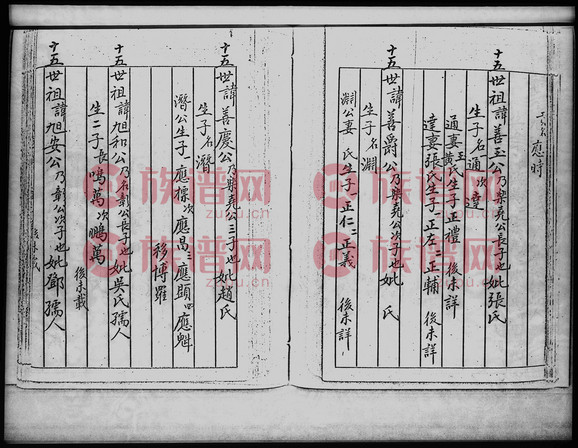 應時
十五世諱善玉公乃樂堯公長子也妣張氏
生子名通次達
通妻黃氏生子正禮 後未詳
達妻張氏生子一正左二正輔 後未詳
十五世諱善爵公乃樂堯公次子也妣 氏
生子名淵
淵公妻 氏生子一正仁二正義 後未詳
十五世諱善慶公乃樂堯公三子也妣趙氏
生子名潛
潛公生子一應標次應昌三應顯四應魁
移博羅
十五世祖諱旭和公乃彰公長子也妣吳氏孺人
生二子長鳴萬次鵬萬 後未載
十五世祖諱旭安公乃彰公次子也妣鄺孺人
族譜网
zupu.cn
族譜网
zupu.cn
族譜网
zupu.cn
族譜网
zupu.cn